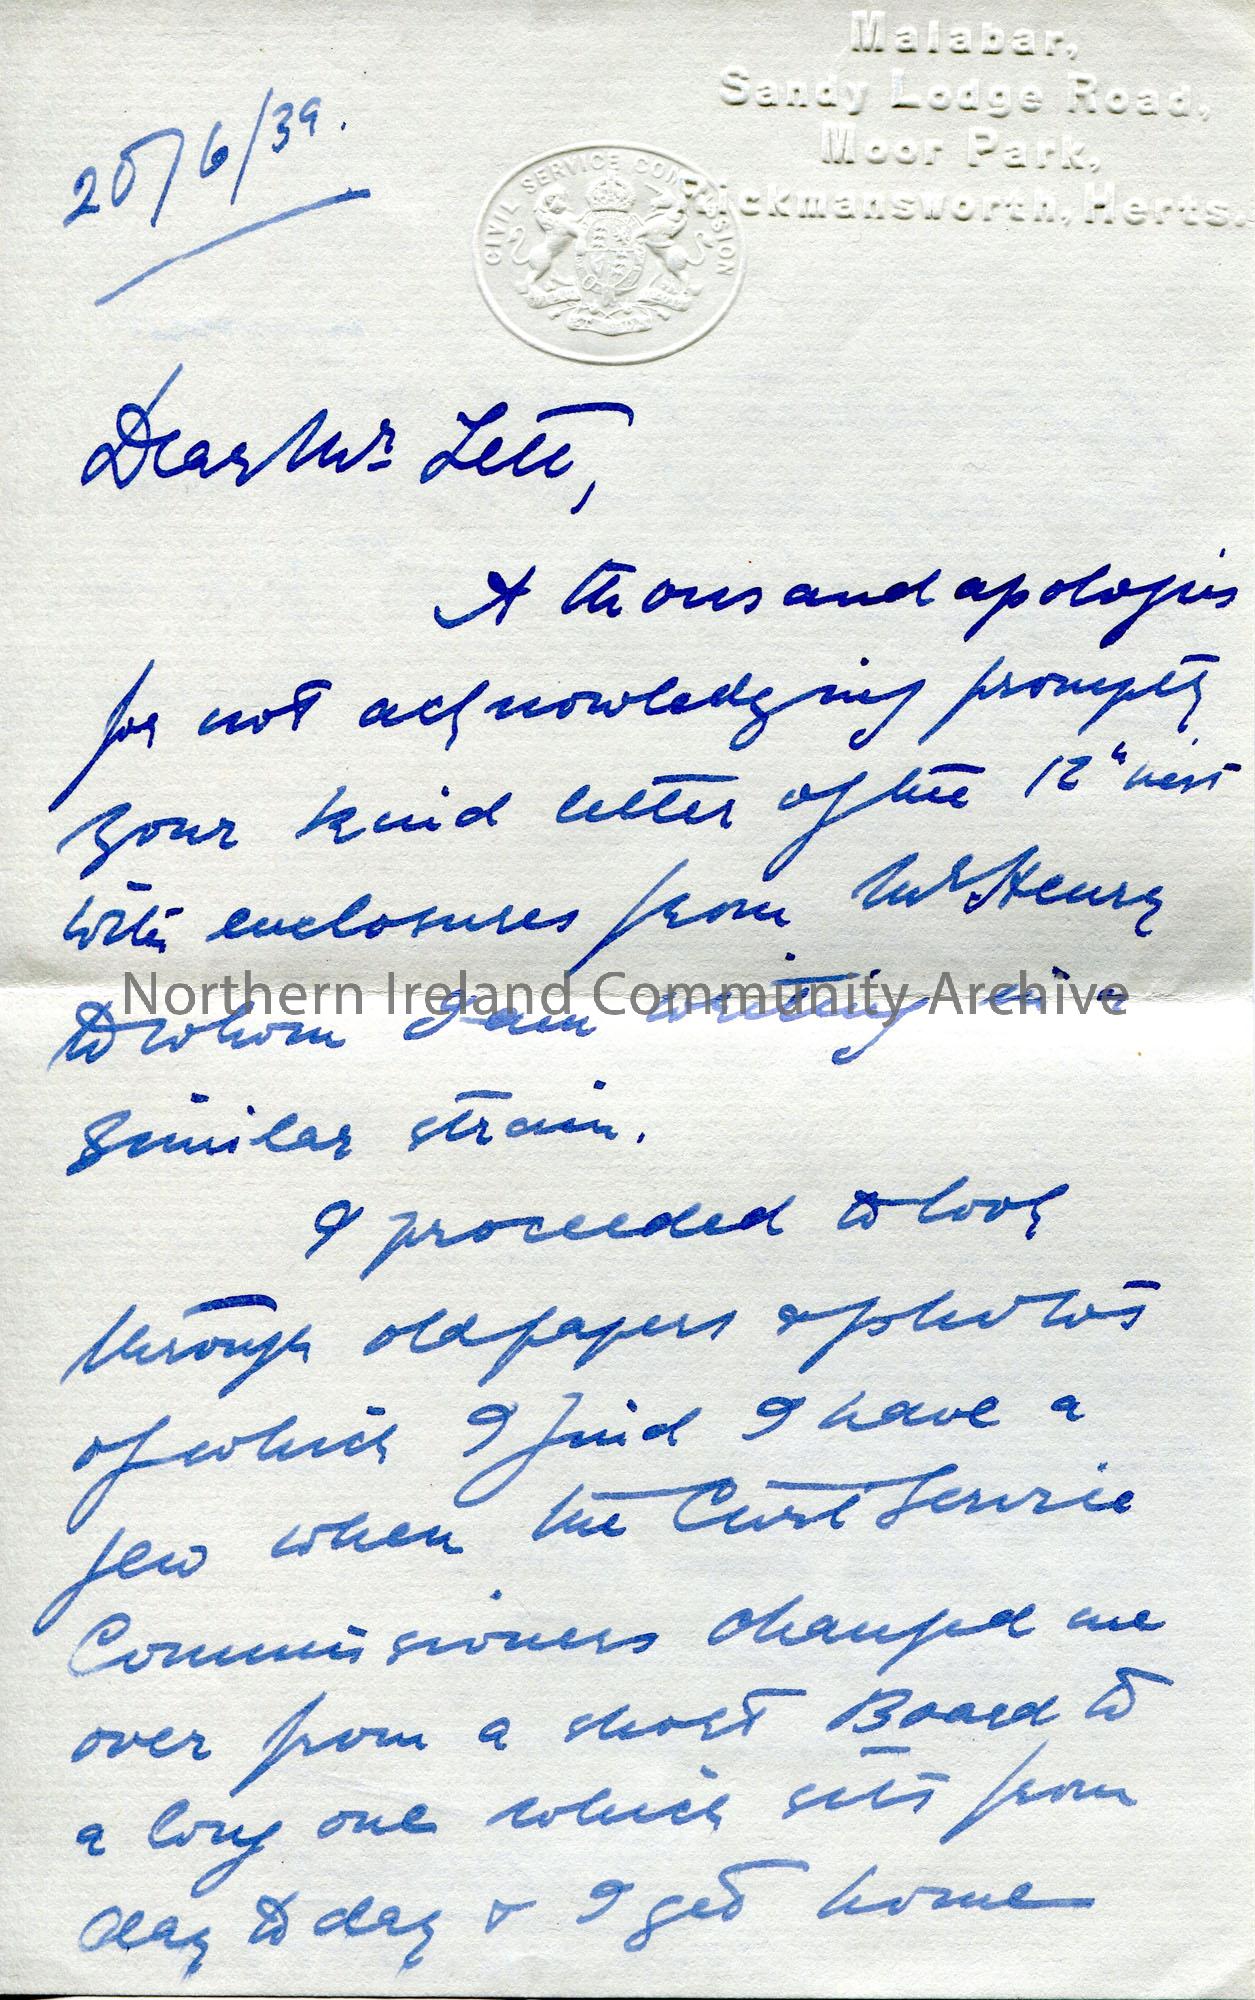 Malabar,
Sandy Lodge Road,
Moor Park,
Rickmansworth, Herts.
CIVIL SERVICE COMMISSION
25/6/39.
Dear Mr Lett,
A thousand apologies
for not acknowledging promptly
your kind letter of the 12th inst
with enclosures from McHenry
to whom I am writing in a
similar strain.
Northern Ireland Community Archive
I proceeded to look
through old papers & photos
of which I find I have a
few when the Civil Service
Commissioners changed me
over from a short Board to
a long one which sits from
day to day & I get home